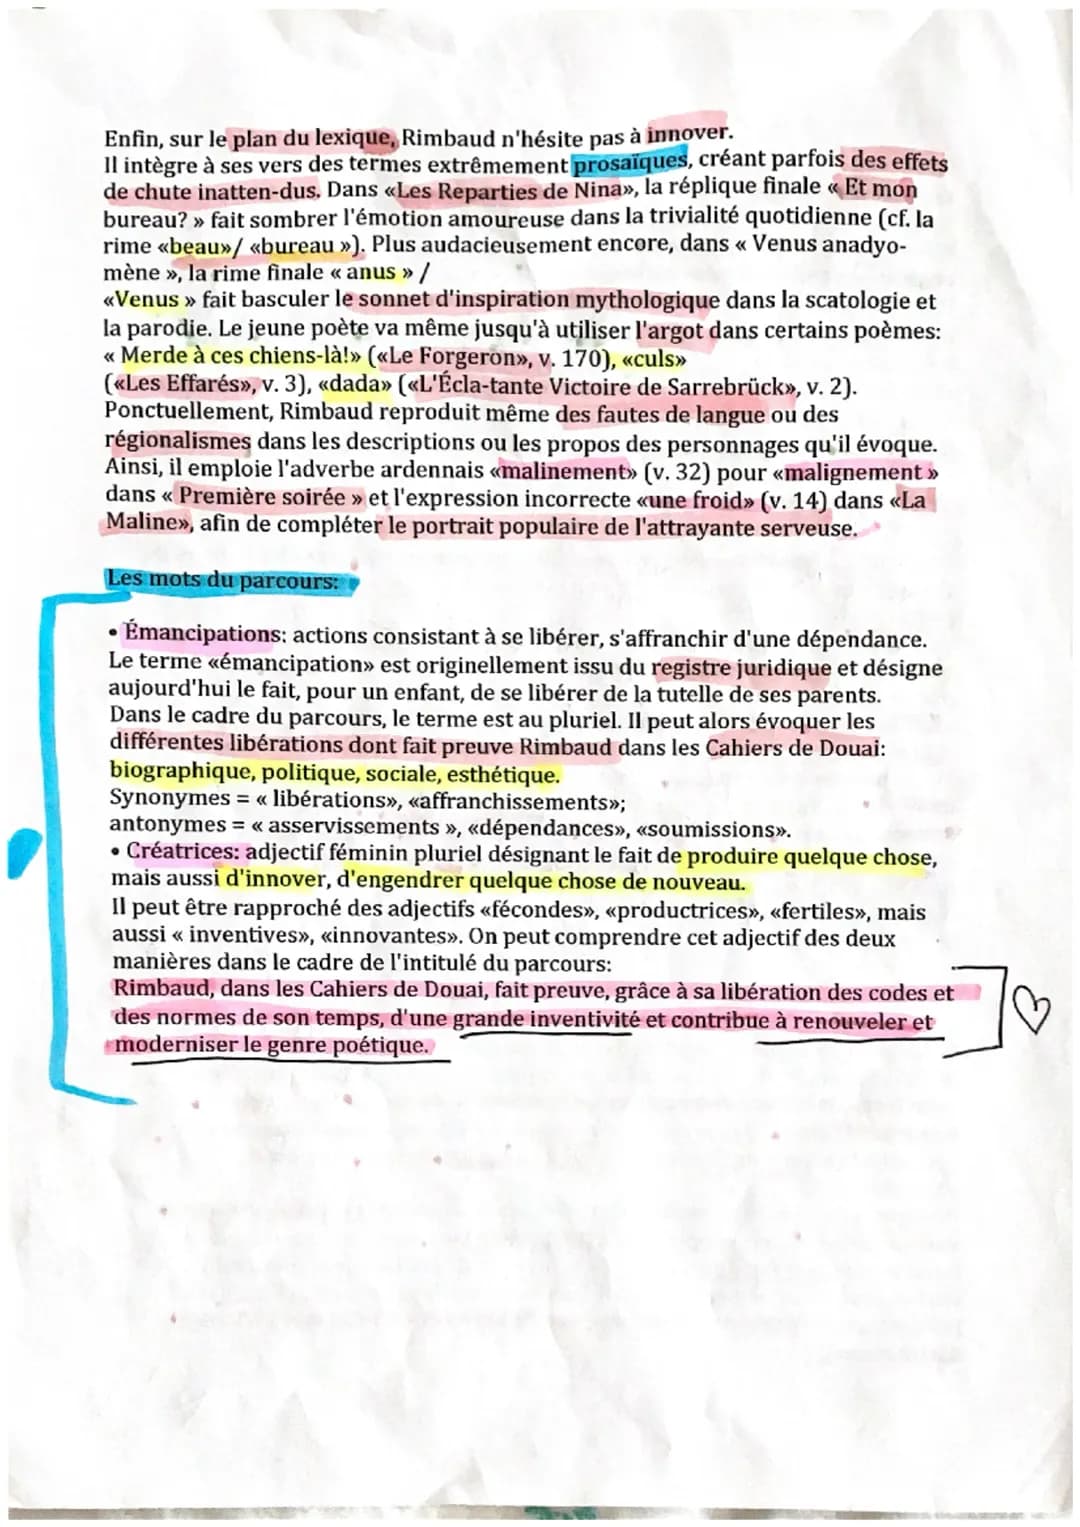 Enfin, sur le plan du lexique, Rimbaud n'hésite pas à innover.
Il intègre à ses vers des termes extrêmement prosaïques, créant parfois des effets
de chute inatten-dus. Dans «Les Reparties de Nina», la réplique finale « Et mon
bureau? » fait sombrer l'émotion amoureuse dans la trivialité quotidienne (cf. la
rime «beau»/ «bureau »). Plus audacieusement encore, dans « Venus anadyo-
mène », la rime finale « anus » /
«Venus » fait basculer le sonnet d'inspiration mythologique dans la scatologie et
la parodie. Le jeune poète va même jusqu'à utiliser l'argot dans certains poèmes:
« Merde à ces chiens-là!» («Le Forgeron», v. 170), «culs»
(«Les Effarés», v. 3), «dada» («L'Écla-tante Victoire de Sarrebrück», v. 2).
Ponctuellement, Rimbaud reproduit même des fautes de langue ou des
régionalismes dans les descriptions ou les propos des personnages qu'il évoque.
Ainsi, il emploie l'adverbe ardennais «malinement» (v. 32) pour «malignement »
dans « Première soirée » et l'expression incorrecte «une froid» (v. 14) dans «La
Maline», afin de compléter le portrait populaire de l'attrayante serveuse.
Les mots du parcours:
• Émancipations: actions consistant à se libérer, s'affranchir d'une dépendance.
Le terme «émancipation» est originellement issu du registre juridique et désigne
aujourd'hui le fait, pour un enfant, de se libérer de la tutelle de ses parents.
Dans le cadre du parcours, le terme est au pluriel. Il peut alors évoquer les
différentes libérations dont fait preuve Rimbaud dans les Cahiers de Douai:
biographique, politique, sociale, esthétique.
Synonymes = « libérations», «affranchissements»;
antonymes = « asservissements », «dépendances», «soumissions».
• Créatrices: adjectif féminin pluriel désignant le fait de produire quelque chose,
mais aussi d'innover, d'engendrer quelque chose de nouveau.
Il peut être rapproché des adjectifs «fécondes», «productrices», «fertiles», mais
aussi « inventives», «innovantes». On peut comprendre cet adjectif des deux
manières dans le cadre de l'intitulé du parcours:
Rimbaud, dans les Cahiers de Douai, fait preuve, grâce à sa libération des codes et
des normes de son temps, d'une grande inventivité et contribue à renouveler et
moderniser le genre poétique.